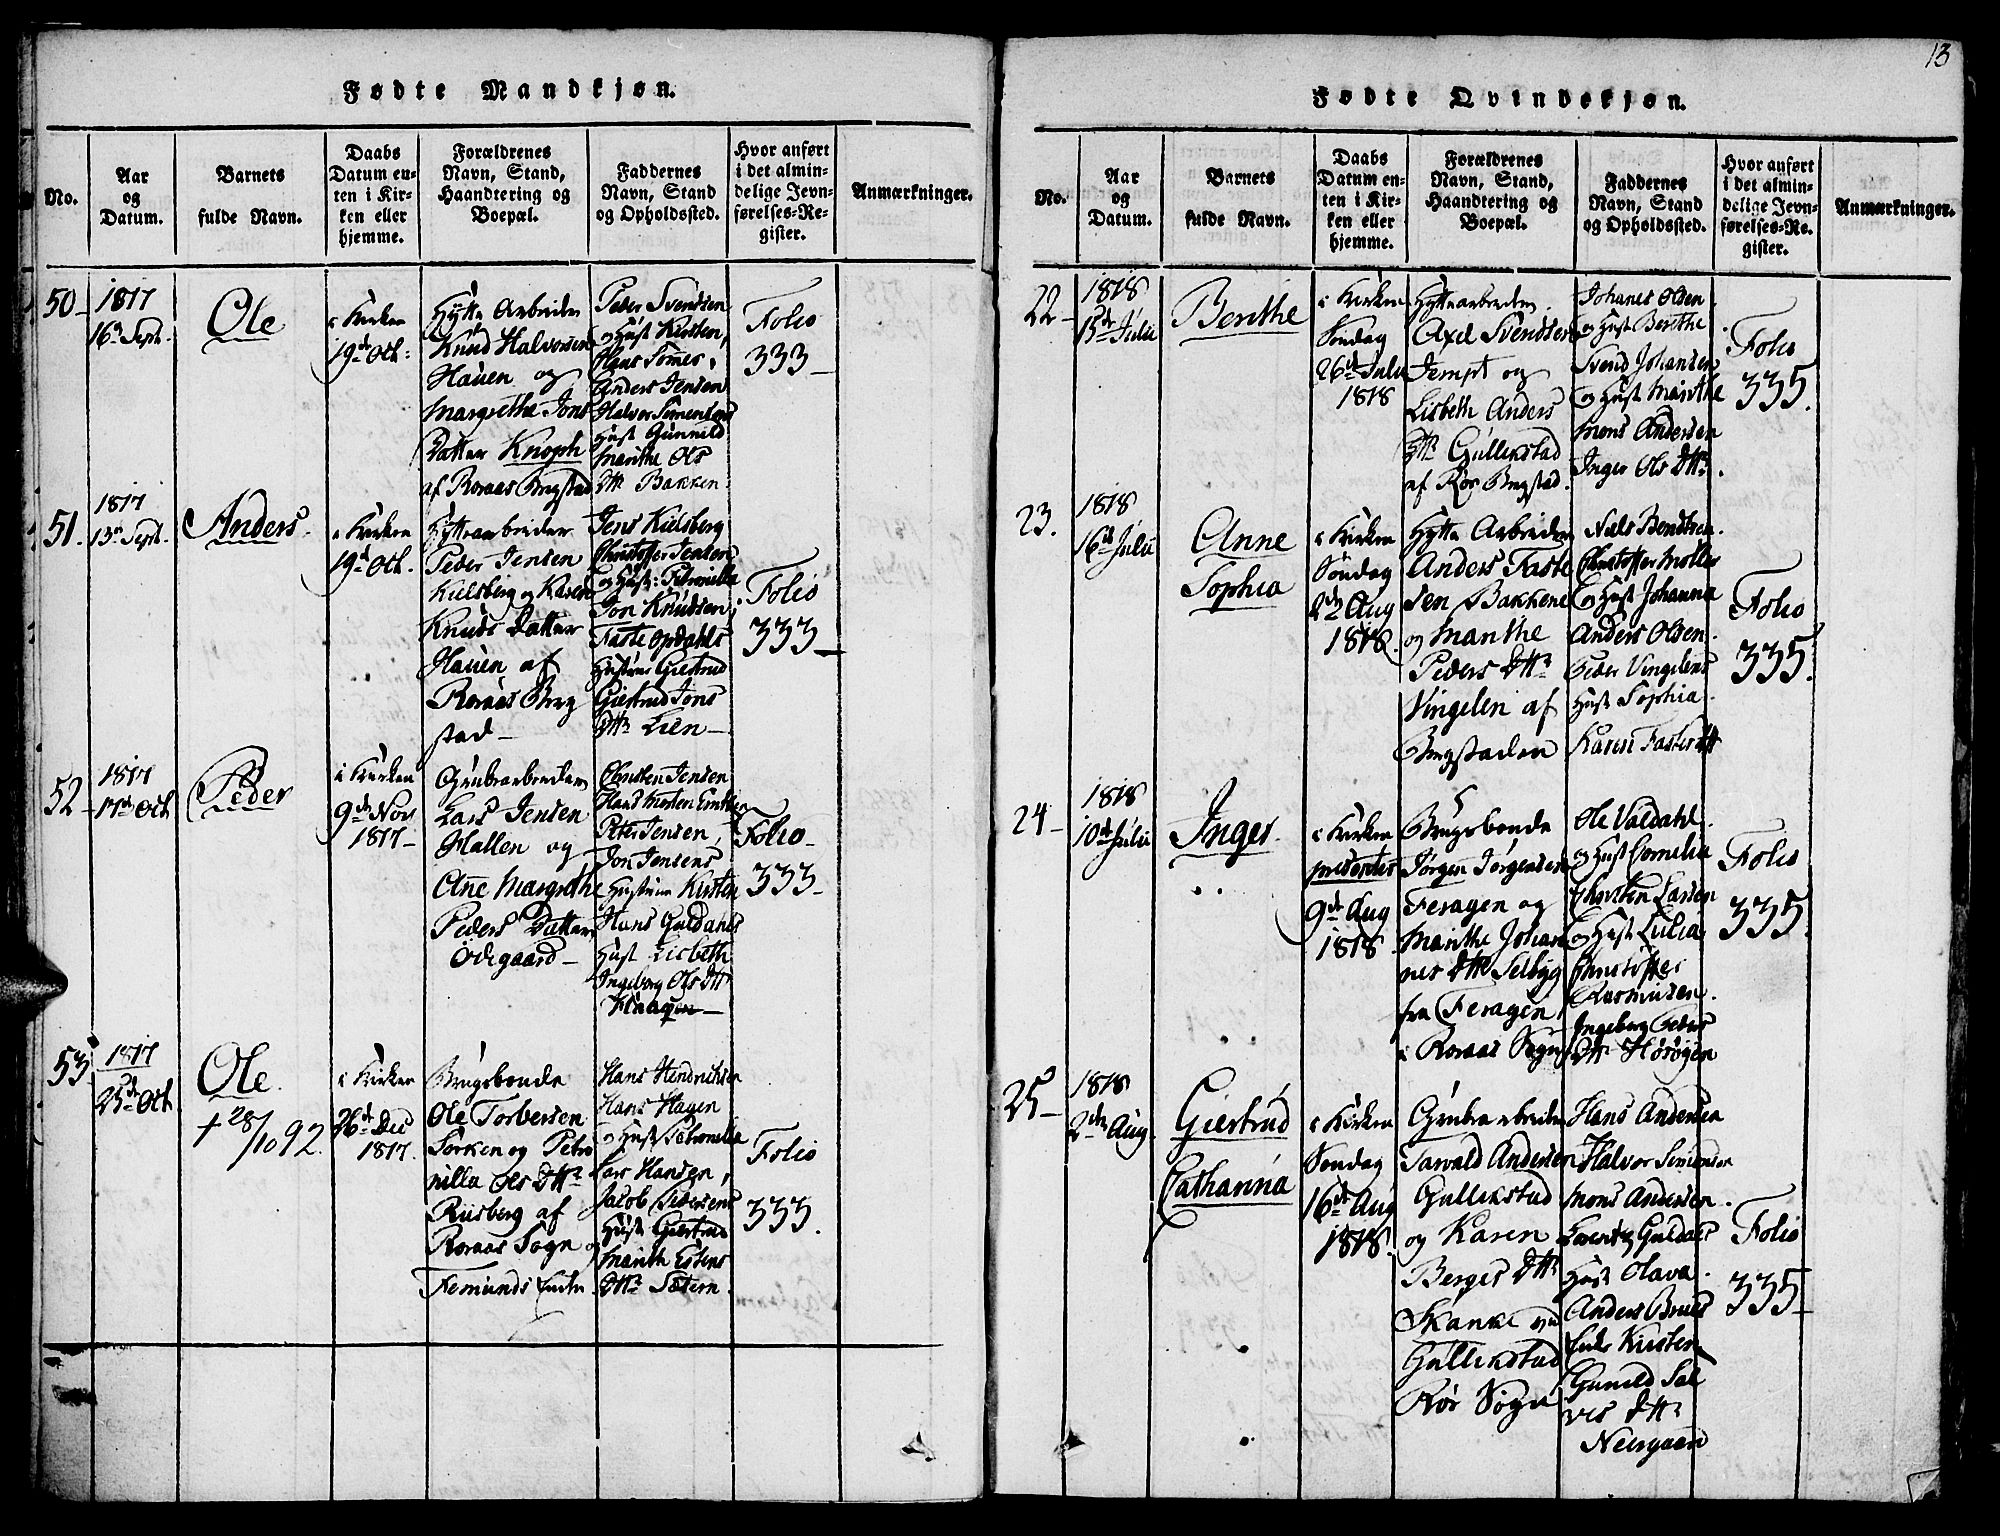 Fødte Mandkjøn.
No.
Aar
og
Datum.
Barnets
fulde Navn.
Daabs
Datum en-
ten i Kir-
ken eller
hjemme.
Forældrenes
Navn, Stand,
Haandtering og
Boepæl.
Faddernes
Navn, Stand
og Opholdssted.
Hvor anført
i det almin-
delige Jevn-
førelses-Re-
gister.
Anmærkninger.
50-
1817
16de Sept.
Ole
i Kirken
19de Oct:
Hytte Arbeider
Knud Halvorsen
Hauen og
Margrethe Jons
Datter Knoph
af Roraas Bergstad
Peder Svendsen
og Hust Kirsten,
Hans Sommer,
Anders Jensen
Halvor Simensens
Hust Gunneld
Marithe Ols
Dttr Bakken
Folio
333-
51.
1817
13de Sept.
Anders.
i Kirken
19de Oct.
Hyttearbeider
Peder Jensen
Kielsberg og Karen
Knuds Datter
Hauen af
Roraas Berg
stad-
Jens Kielsberg
Christoffer Jensen
og Hust: Petronella
Jon Knudsen,
Faste Opdahls
Hustrue Giertrud
Giertrud Jons
Dttr Lien-
Folio
333-
52-
1817
17de Oct
Peder
i Kirken
9de Nov
1817-
Grubearbeider
Lars Jensen
Hallen og
Ane Margrethe
Peders Datter
Ødegaard-
Christen Jensen
Hans Morten
Peter Jensen,
Jon Jensens
Hustrue Kirsten
Hans Guldahls
Hust Lisbeth
Ingeborg Ols Dttr
Haagen-
Folio-
333-
53
1817
25de Oct
Ole.
+ 28/10 92.
i Kirken
26de Dec
1817.
Brugsbonde
Ole Torbersen
Sorken og Petro
nille Ols Dttr
Riisberg af
Roraas Sogn
Femunds Enden
Hans Hendriksen
Hans Hagen
og Hust Petronella
Lars Hansen,
Jacob Pedersens
Hust Giertrud
og Marith Estens
Dttr Sætern.
Folio
333.
13
Fødte Qvindekjøn.
No.
Aar
og
Datum.
Barnets
fulde Navn.
Daabs
Datum en-
ten i Kir-
ken eller
hjemme.
Forældrenes
Navn, Stand,
Haandtering og
Boepæl.
Faddernes
Navn, Stand
og Opholdssted.
Hvor anført
i det almin-
delige Jevn-
førelses-Re-
gister.
Anmærkninger.
22-
1818
15de Julii
Berithe
i Kirken
Søndag
26de Julii
1818
Hyttearbeider.
Axel Svendsen
Jempt og
Lisbeth Anders
Dttr Gullikstad
af Rør Bergstad.
Johanes Olsen
og Hust Berithe
Svend Johansen
og Hust Marithe
Mons Andersen
Inger Ols Dttr.
Folio
335.
23.
1818
16de Julii
Anne
Sophia
i Kirken
Søndag
2den Aug
1818.
Hytte Arbeider
Anders Faste
sen Bakkene
og Marithe
Peders Dttr
Vingelen af
Bergstaden
Niels Bendtsen
Christoffer Møller
og Hust Johanna
Anders Olsen.
Peder Vingelens
Hust Sophia.
Karen Fastes Dtt
Folio
335.
24-
1818
10de Julii
Inger.
i Kirken
9de Aug
1818.
Brugsbonde
Jørgen Jørgensen
Feragen og
Marithe Johan
nes Dttr Selbyg
fra Feragen
i Roraas Sogn
Ole Valdahl.
og Hust Cornelia
Christen Larsen
og Hust Lulia
Christoffer
Rasmusen.
Ingeborg Peders
Dttr Horøgen
Folio
335.
25-
1818
2den Aug.
Giertrud
Catharina
i Kirken
Søndag
16de Aug
1818.
Grubearbeider
Tarvald Andersen
Gullikstad
og Karen
Berges Dttr
Skanke
Gullikstad
Rør Sogn
Hans Andersen
Halvor Simensen
Mons Andersen.
Guldals
Hust Olava.
Anders Bruus
Kirsten
Guneld Sal
ves Dttr
Neergaard
Folio
335-